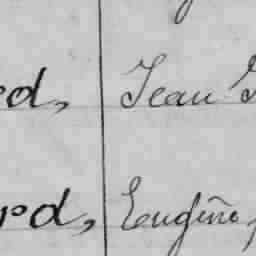 ed, Jean
rd, Eugène